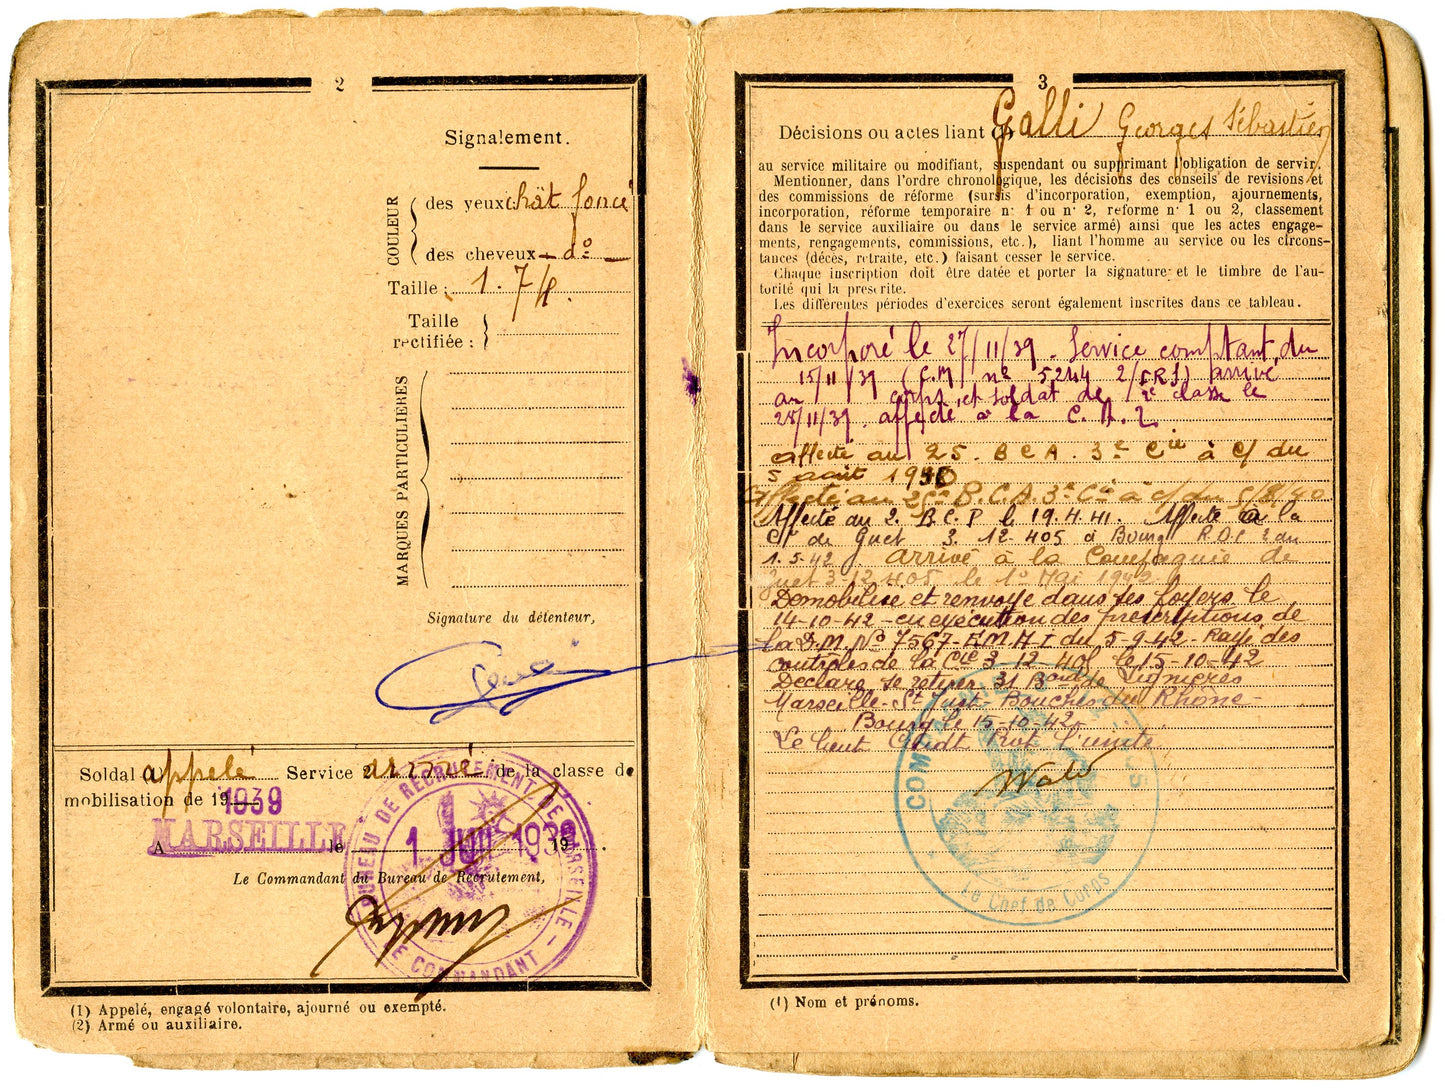 2
Signalement.
COULEUR
des yeux chât foncé
des cheveux — do —
Taille : 1.74.
Taille
rectifiée :
MARQUES PARTICULIÈRES
Signature du détenteur,
Soldat appelé Service armé de la classe de
mobilisation de 19 1939
MARSEILLE
A le 1 JUI 1939 19
Le Commandant du Bureau de Recrutement,
BUREAU DE RECRUTEMENT DE MARSEILLE –
LE COMMANDANT
(1) Appelé, engagé volontaire, ajourné ou exempté.
(2) Armé ou auxiliaire.
3
Décisions ou actes liant (1) Galli Georges Sébastien
au service militaire ou modifiant, suspendant ou supprimant l'obligation de servir.
Mentionner, dans l'ordre chronologique, les décisions des conseils de revisions et
des commissions de réforme (sursis d'incorporation, exemption, ajournements,
incorporation, réforme temporaire n° 1 ou n° 2, reforme n° 1 ou 2, classement
dans le service auxiliaire ou dans le service armé) ainsi que les actes engage-
ments, rengagements, commissions, etc.), liant l'homme au service ou les circons-
tances (décès, retraite, etc.) faisant cesser le service.
Chaque inscription doit être datée et porter la signature et le timbre de l'au-
torité qui la prescrite.
Les différentes périodes d'exercices seront également inscrites dans ce tableau.
Incorporé le 27/11/39. Service comptant du
15/11/39 (C.M. n° 5244 2/CRS) arrivé
au corps et soldat de 2e classe le
28/11/39. affecté à la C.A.2
affecté au 25. B C A. 3e Cie à c/ du
5 août 1940
Affecté au 25e B.C.A. 3e Cie à c/ du 5/8/40
Affecté au 2. B.C.P le 19.4.41. Affecté à la
Cie de Guet 3. 12-405 à Bourg R.D.P 2 du
1.5.42 Arrivé à la Compagnie de
Guet 3-12 405 le 1er Mai 1942
Démobilisé et renvoyé dans ses foyers le
14-10-42 – en exécution des prescriptions de
la D.M. No 7567-EMAI du 5-9-42 – Rayé des
contrôles de la Cie 3-12-405 le 15-10-42
Déclare se retirer 31 Bd de Lignières
Marseille – St Just – Bouches du Rhône –
Bourg le 15-10-42
Le Lieut Cmdt Prot l'unité
Le Chef de Corps
(1) Nom et prénoms.